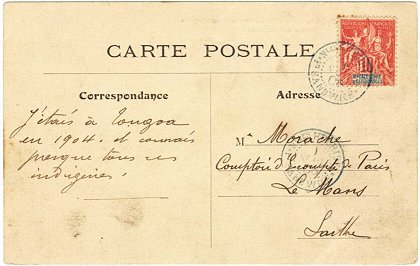 CARTE POSTALE
Correspondance
Adresse
J'étais à Tongoa
en 1904. et connais
presque tous ces
indigènes.
M Morache
Comptoir d'Escompte de Paris
Le Mans
Sarthe
10